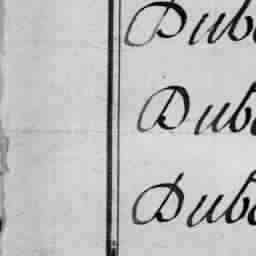 Dub
Dub
Dub